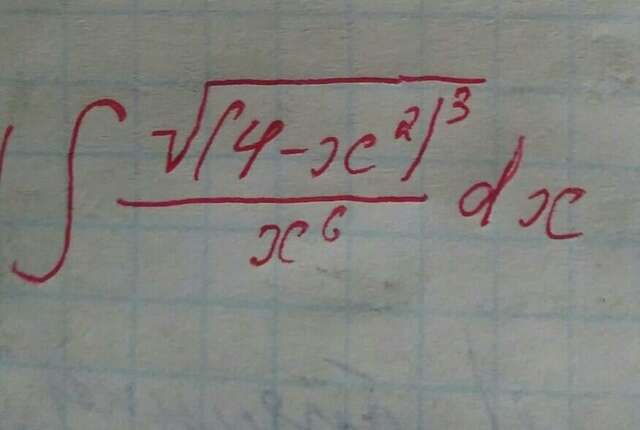 ∫ √(4-x²)³ / x⁶ dx